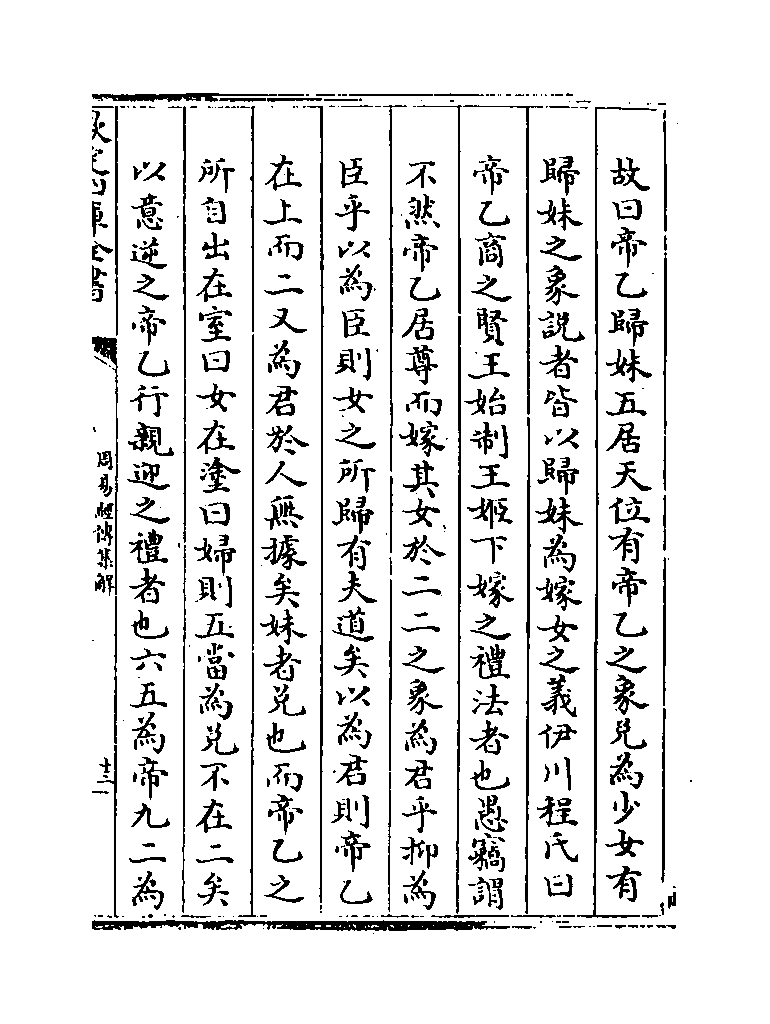 故曰帝乙歸妹五居天位有帝乙之象兌為少女有
歸妹之象説者皆以歸妹為嫁女之義伊川程氏曰
帝乙商之賢王始制王姬下嫁之禮法者也愚竊謂
不然帝乙居尊而嫁其女於二二之象為君乎抑為
臣乎以為臣則女之所歸有夫道矣以為君則帝乙
在上而二又為君於人無據矣妹者兌也而帝乙之
所自出在室曰女在塗曰婦則五當為兌不在二矣
以意逆之帝乙行親迎之禮者也六五為帝九二為
欽定四庫全書
周易經傳集解
十三